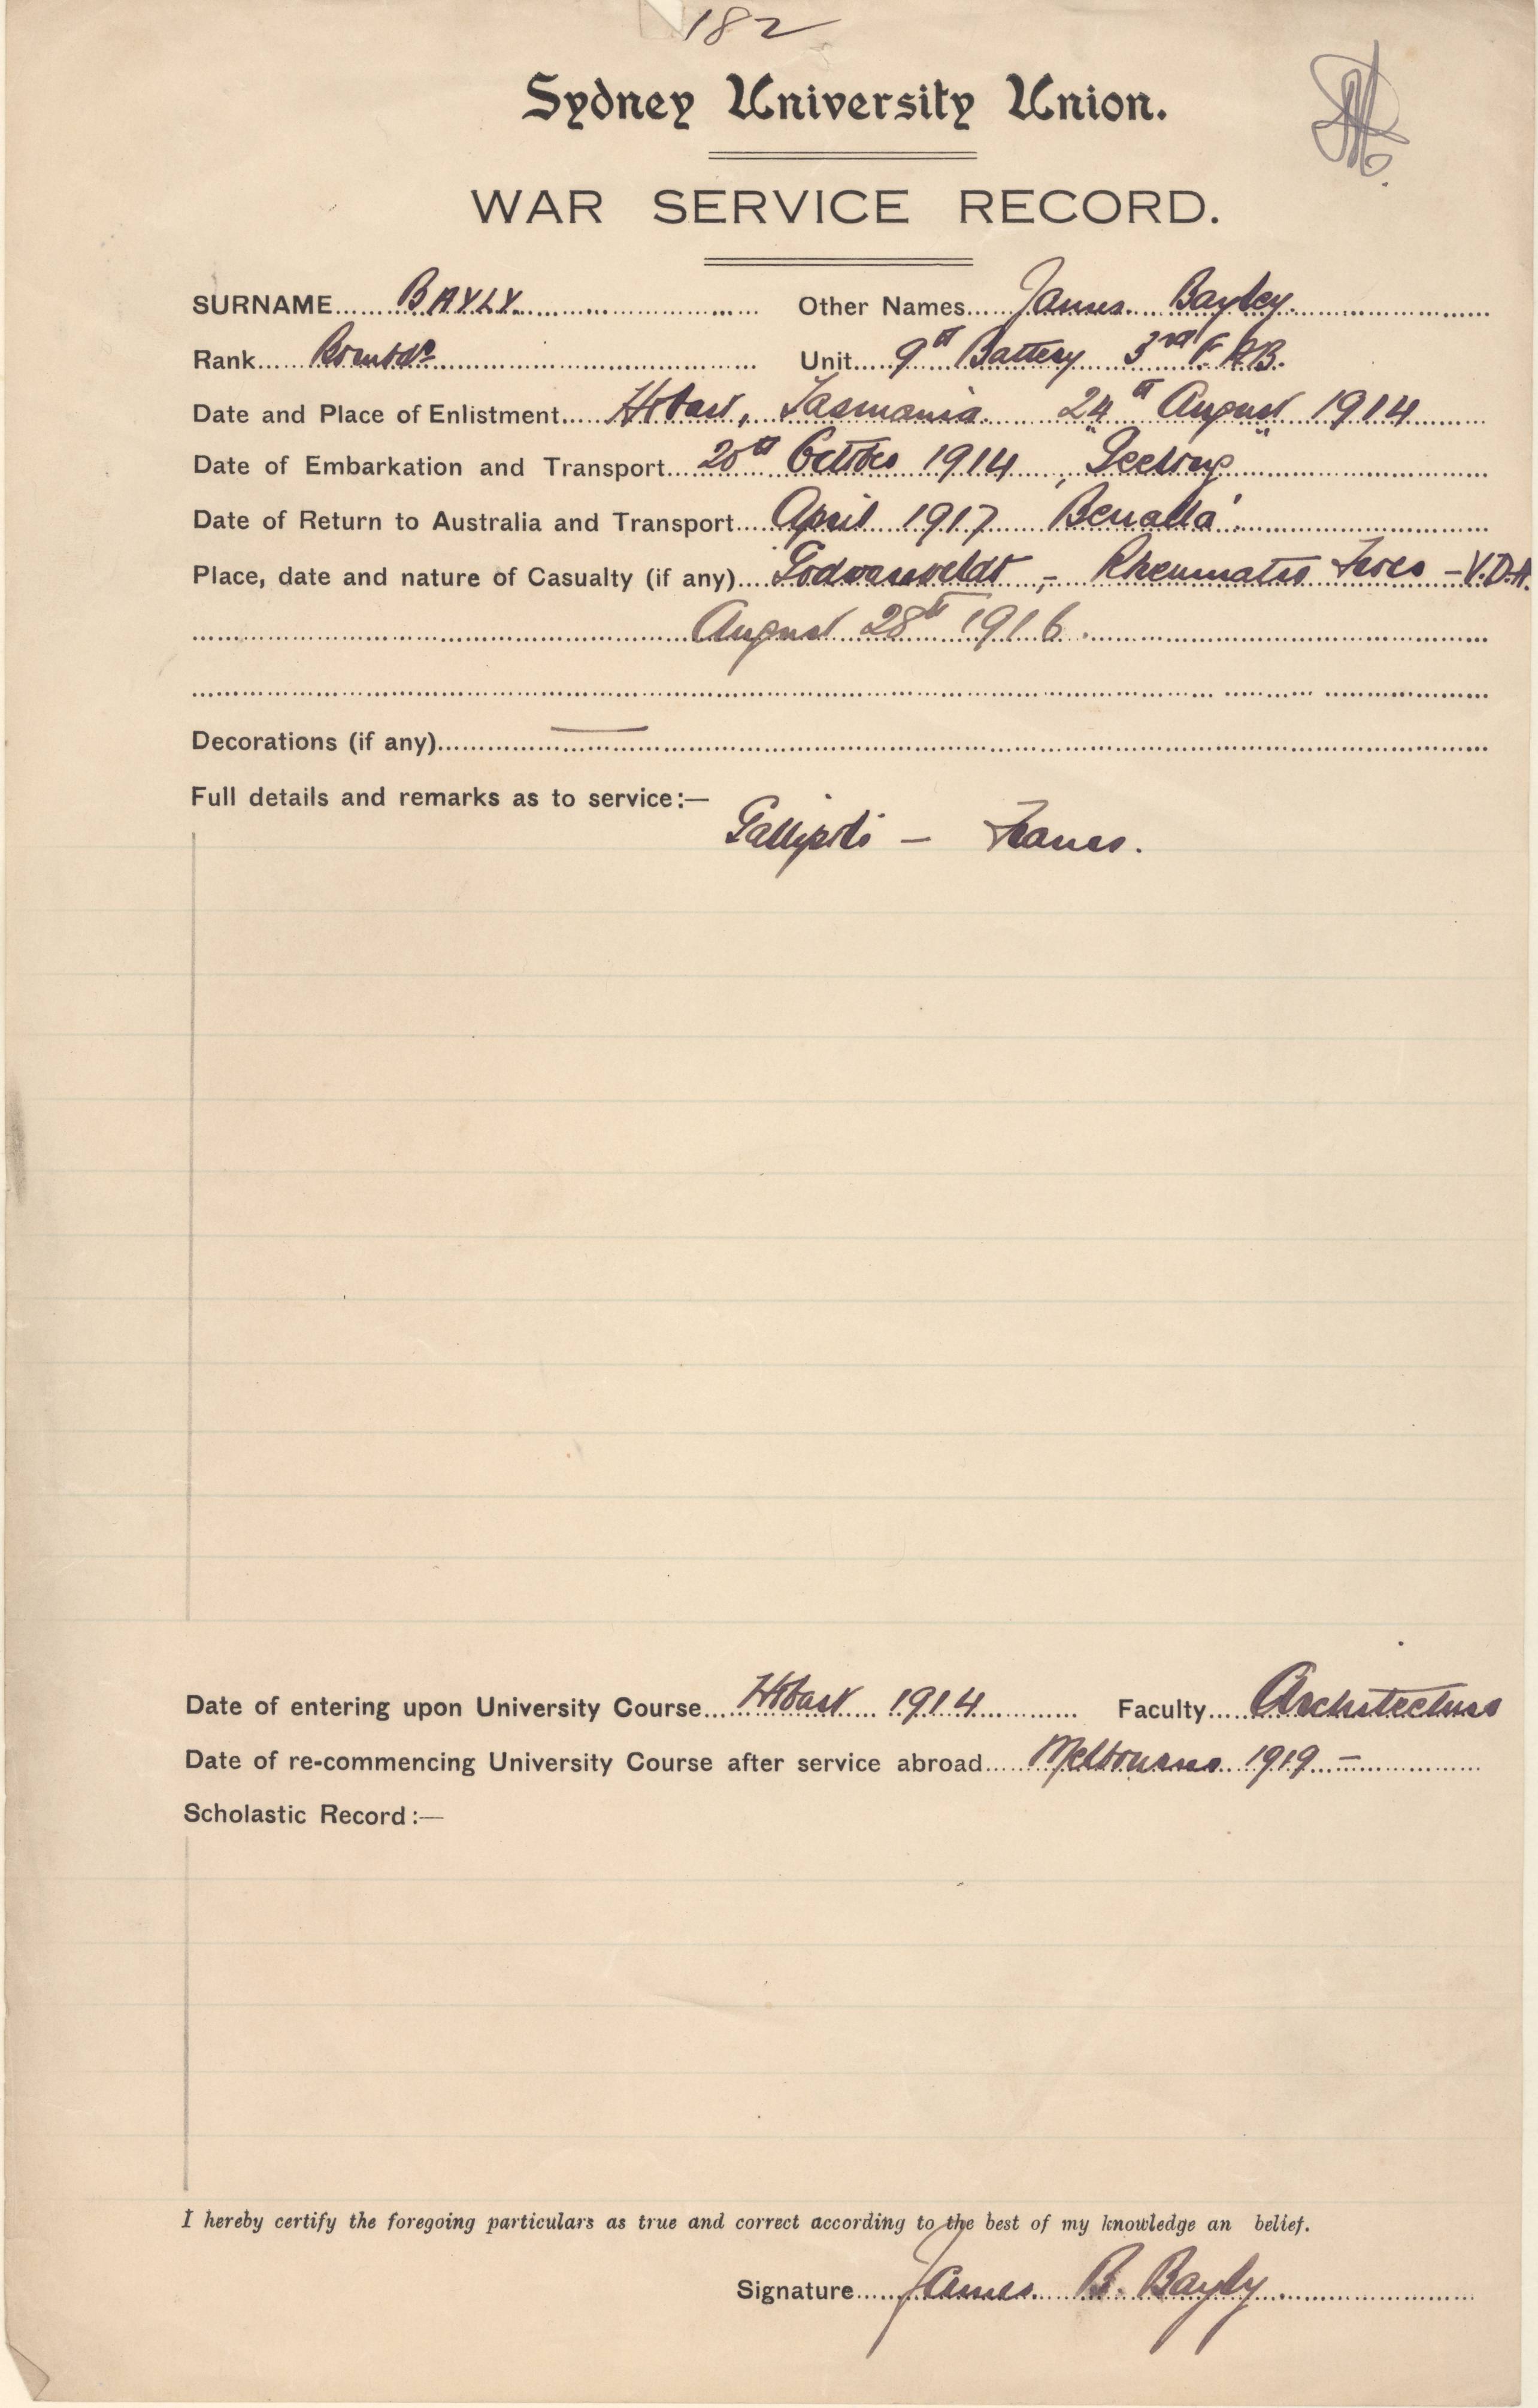 182
Sydney University Union.
WAR SERVICE RECORD.
SURNAME BAYLY. Other Names James Bayley.
Rank Bombdr Unit 9th Battery 3rd F.A.B.
Date and Place of Enlistment Hobart, Tasmania. 24th August 1914
Date of Embarkation and Transport 20th October 1914, "Geelong"
Date of Return to Australia and Transport April 1917 Benalla
Place, date and nature of Casualty (if any) Godwaersveldt - Rheumatic Fever - V.D.H.
August 28th 1916.
Decorations (if any) —
Full details and remarks as to service:—
Gallipoli — France.
Date of entering upon University Course Hobart 1914 Faculty Architecture
Date of re-commencing University Course after service abroad Melbourne 1919 —
Scholastic Record:—
I hereby certify the foregoing particulars as true and correct according to the best of my knowledge an belief.
Signature James B. Bayly